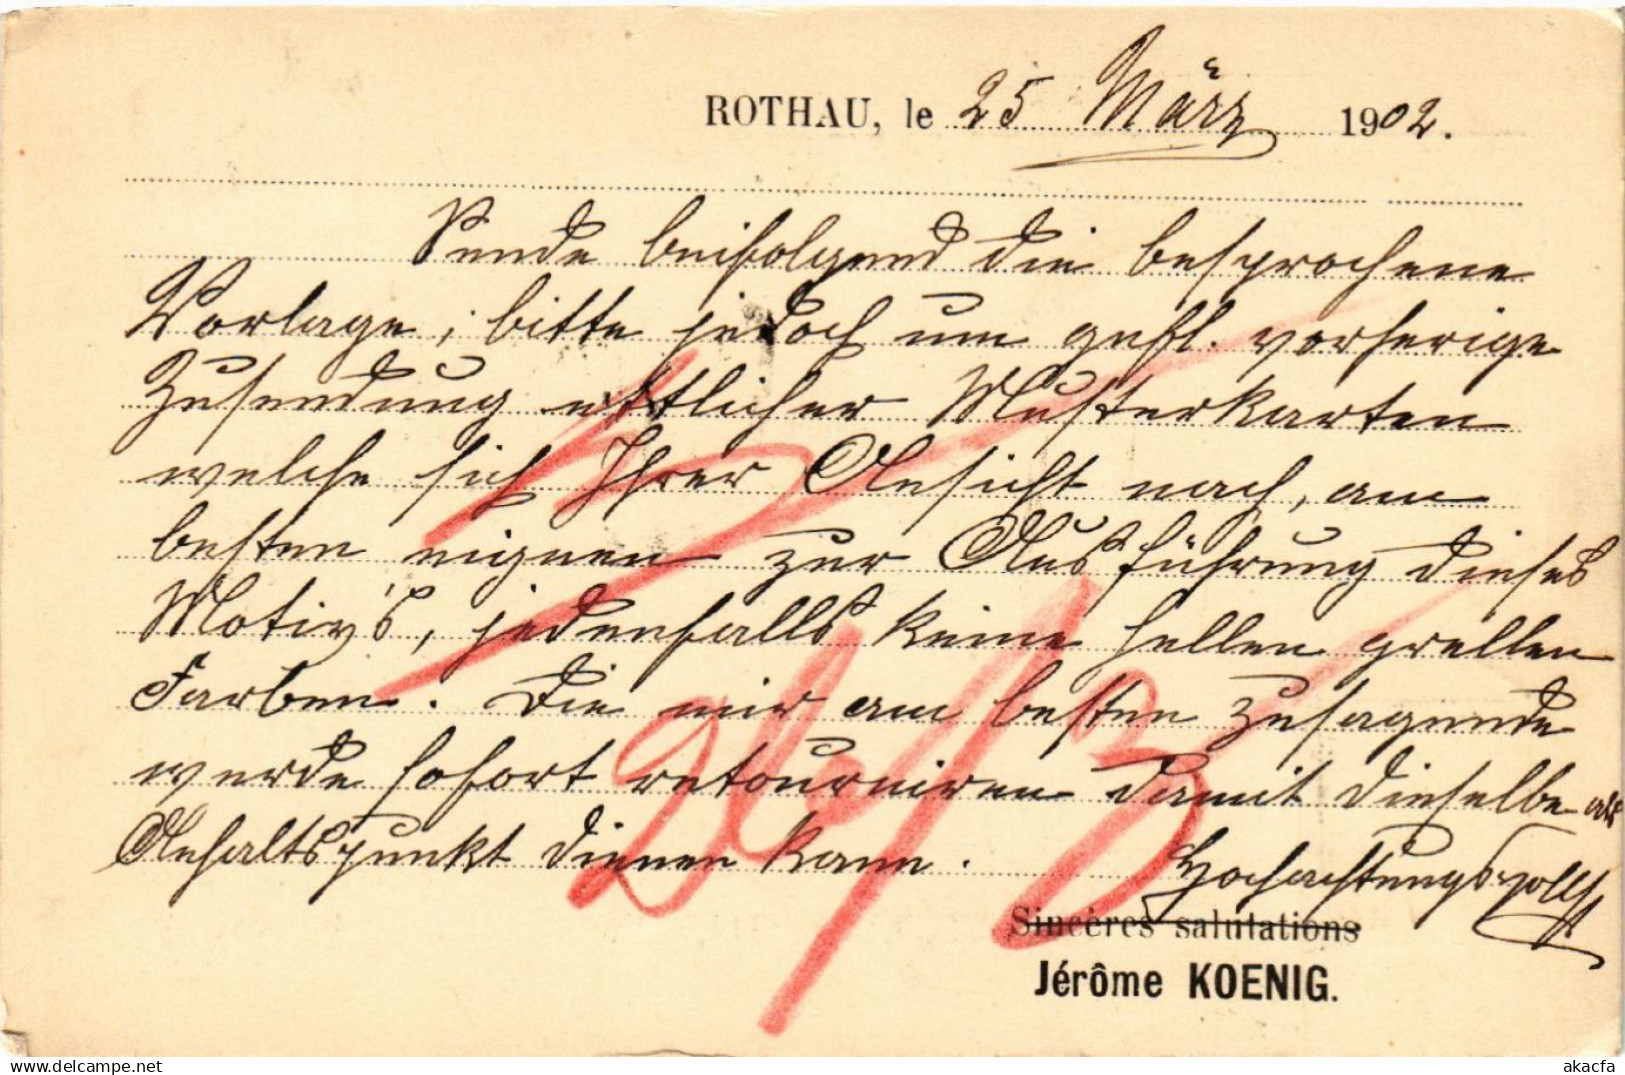 ROTHAU, le 25 März 1902.
Sende beifolgend die besprochene
Vorlage, bitte jedoch um gefl. vorherige
Zusendung ettlicher Musterkarten
welche sich Ihrer Ansicht nach, am
besten eignen zur Ausführung dieses
Motiv's, jedenfalls keine hellen grellen
Farben. Die mir am besten zusagende
werde sofort retourniren damit dieselbe als
Anhaltspunkt dienen kann.
Hochachtungsvollst
Sincères salutations
Jérôme KOENIG.
26/3
akacfa